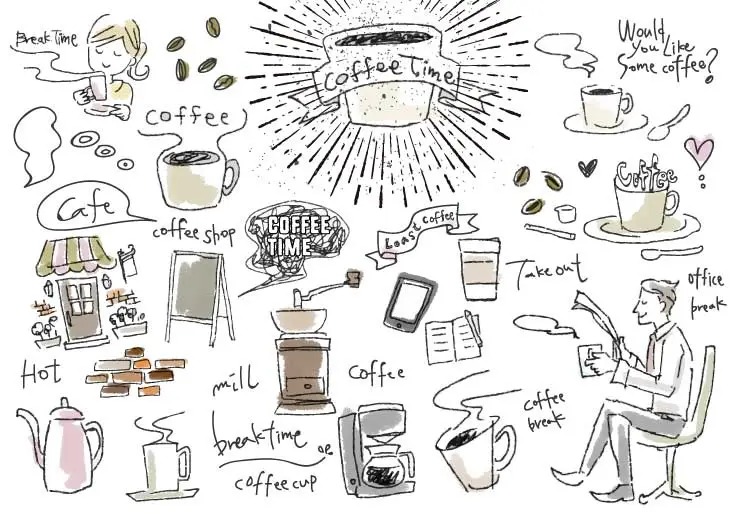 Break Time
coffee
Coffee Time
Would
You Like
Some coffee?
Cafe
coffee shop
COFFEE
TIME
Roast coffee
Coffee
Take out
office
break
Hot
mill
Coffee
coffee
break
breaktime
coffee cup